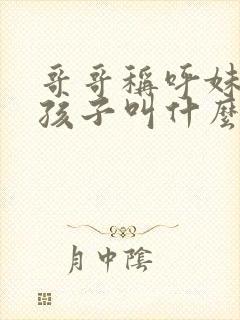 哥哥稱呼妹
孩子叫什麼
月中陰